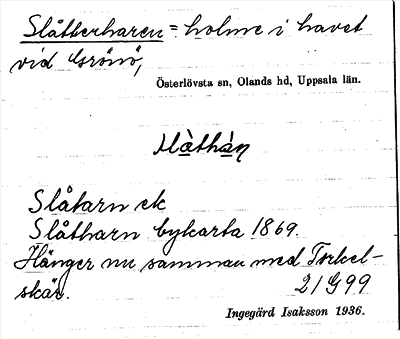 Slåtterharen = holme i havet
vid Grönö,
Österlövsta sn, Olands hd, Uppsala län.
Slåtarn ek
Slåtharn bykarta 1869.
Hänger nu samman med Torkel-
skär. 21 G 99
Ingegärd Isaksson 1936.